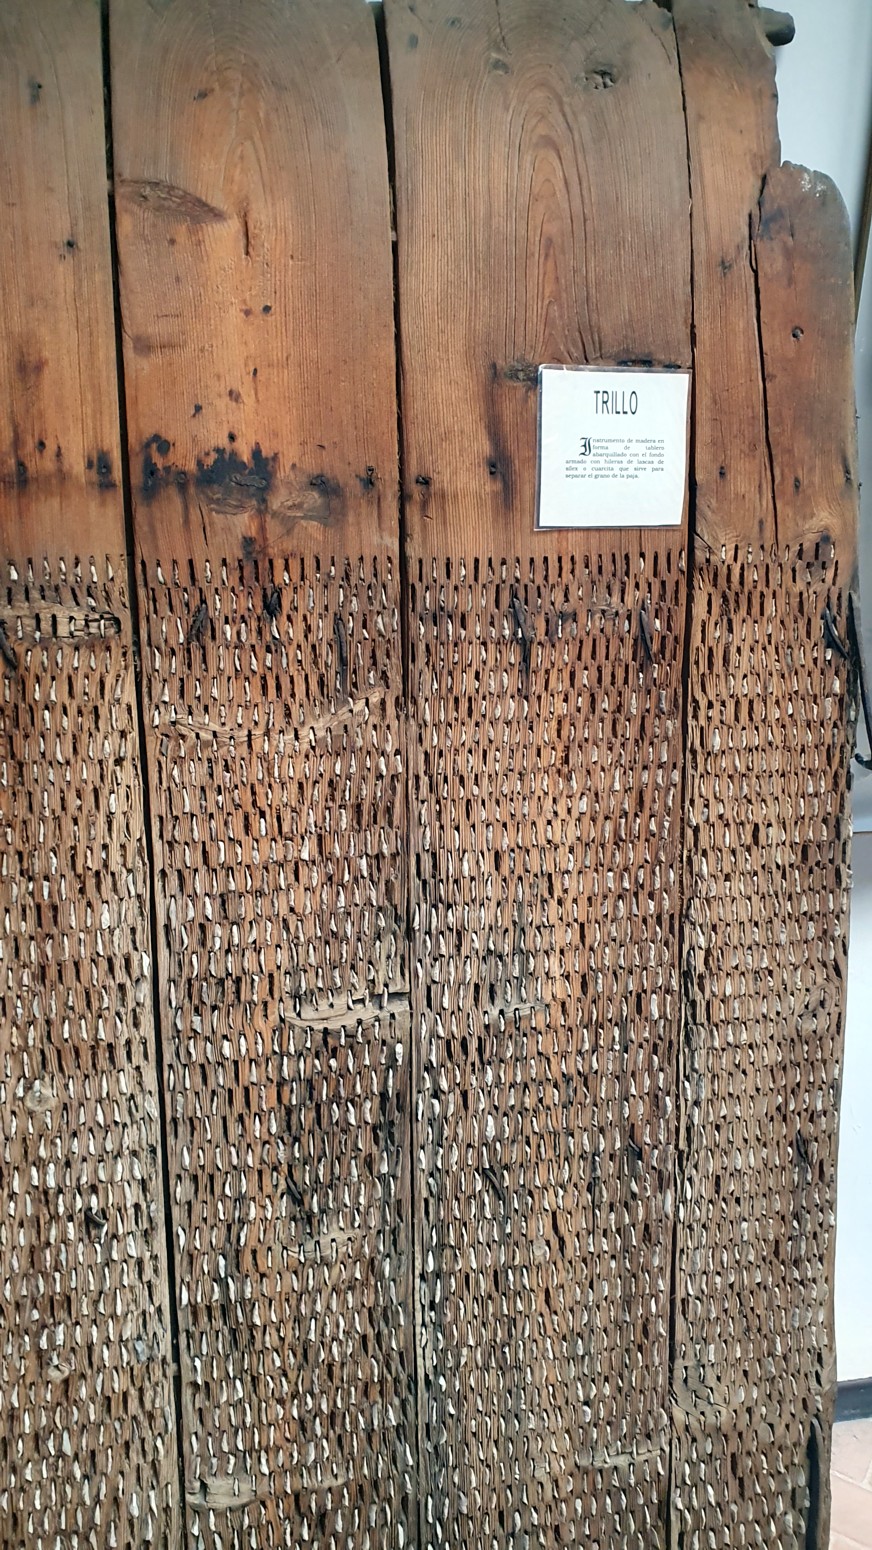 TRILLO
Instrumento de madera en
forma de tablero
abarquillado con el fondo
armado con hileras de lascas de
sílex o cuarcita que sirve para
separar el grano de la paja.